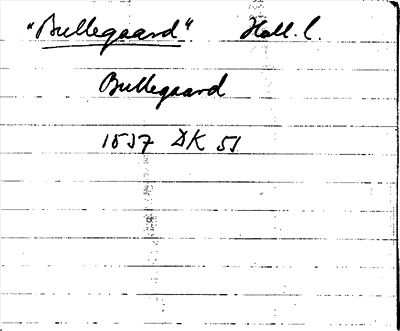 "Bullegaard" Holl. l.
Bullegaard
1537 DK 51